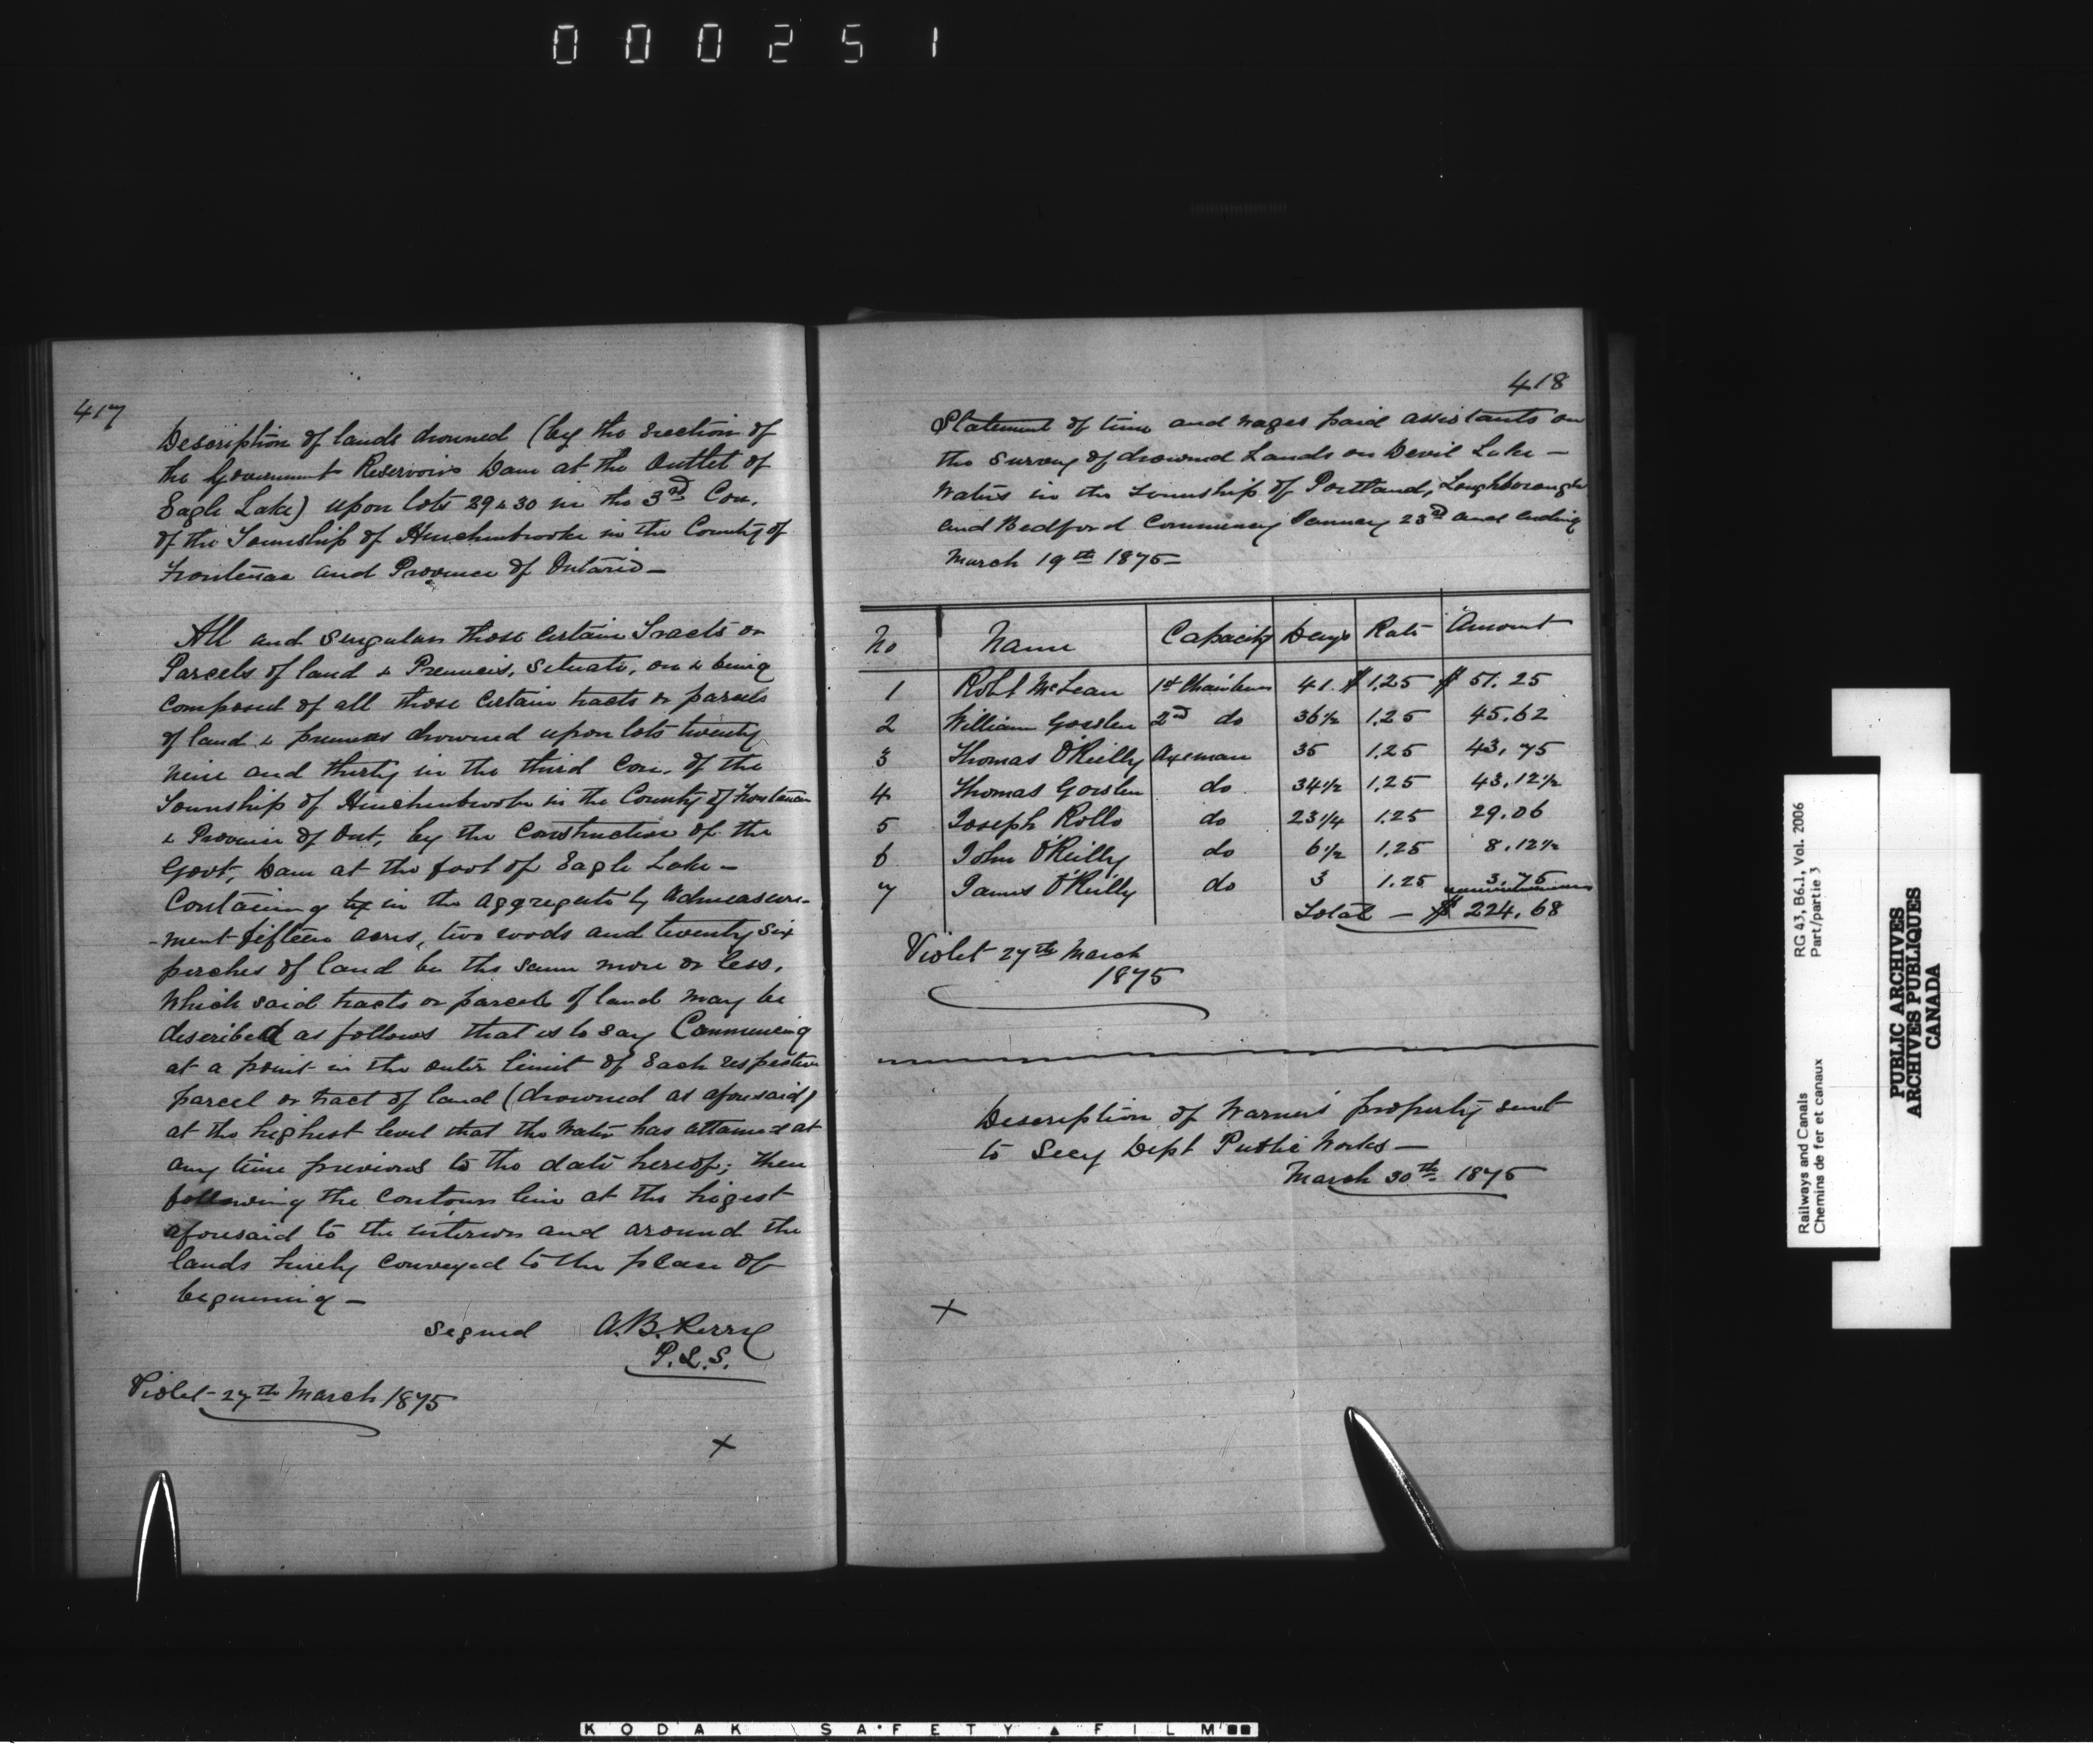 000251
417
Description of lands drowned (by the erection of
the Government Reservoirs Dam at the Outlet of
Eagle Lake) upon lots 29 & 30 in the 3rd Con.
of the Township of Hinchenbrooke in the County of
Frontenac and Province of Ontario —
All and Singular those certain Tracts or
Parcels of land & Premises, Situate, on & being
composed of all those certain tracts or parcels
of land & premises drowned upon lots twenty
nine and thirty in the third Con. of the
Township of Hinchenbrooke in the County of Frontenac
& Province of Ont, by the Construction of the
Govt, Dam at the foot of Eagle Lake —
Containing in the aggregate by Admeasure-
-ment fifteen acres, two roods and twenty six
perches of land be the same more or less.
Which said tracts or parcels of land may be
described as follows that is to say Commencing
at a point in the outer limit of Each respective
parcel or tract of land (drowned as aforesaid)
at the highest level that the Water has attained at
any time previous to the date hereof; then
following the Contour line at the higest
aforesaid to the interior and around the
lands hereby conveyed to the place of
beginning —
Signed A.B. Perry
P.L.S.
Violet 27th March 1875
X
418
Statement of time and wages paid assistants on
the Survey of drowned Lands on Devil Lake —
Waters in the Township of Portland, Loughborough
and Bedford Commencing January 23rd and ending
March 19th 1875 —
No Name Capacity Days Rate Amount
1 Robt McLean 1st Chainbearer 41. $1.25 $ 51.25
2 William Gorslen 2nd do 36½ 1.25 45.62
3 Thomas O'Reilly Axeman 35 1.25 43.75
4 Thomas Gorslen do 34½ 1.25 43.12½
5 Joseph Rollo do 23¼ 1.25 29.06
6 John O'Reilly do 6½ 1.25 8.12½
7 James O'Reilly do 3 1.25 3.75
Total — $ 224.68
Violet 27th March
1875
Description of Warner's property sent
to Secy Dept Public Works —
March 30th 1875
X
RG 43, B6.1, Vol. 2006
Part/partie 3
Railways and Canals
Chemins de fer et canaux
PUBLIC ARCHIVES
ARCHIVES PUBLIQUES
CANADA
KODAK SAFETY FILM